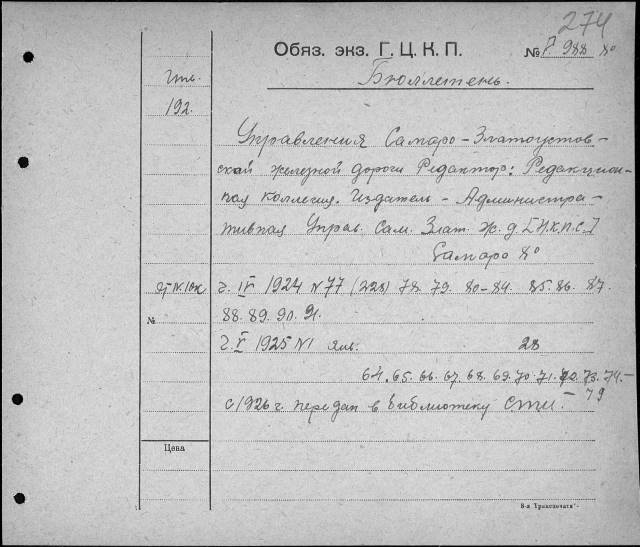 274
Обяз. экз. Г. Ц. К. П.
№ 988 8º
Бюллетень.
192
Управления Самаро-Златоустов-
ской железной дороги Редактор: Редакцион-
ная Коллегия. Издатель - Администра-
тивная Управ. Сам. Злат. ж. д [Н.К.П.С.]
Самара 8º
г. IV 1924 N 77 (228) 78. 79. 80-84. 85. 86. 87.
№ 88. 89. 90. 91.
г. V 1925 N 1 янв. 28
64. 65. 66. 67. 68. 69. 70. 71. 73. 74. -
- 79
с 1926 г. передан в библиотеку
Цена
8-я Транспечати